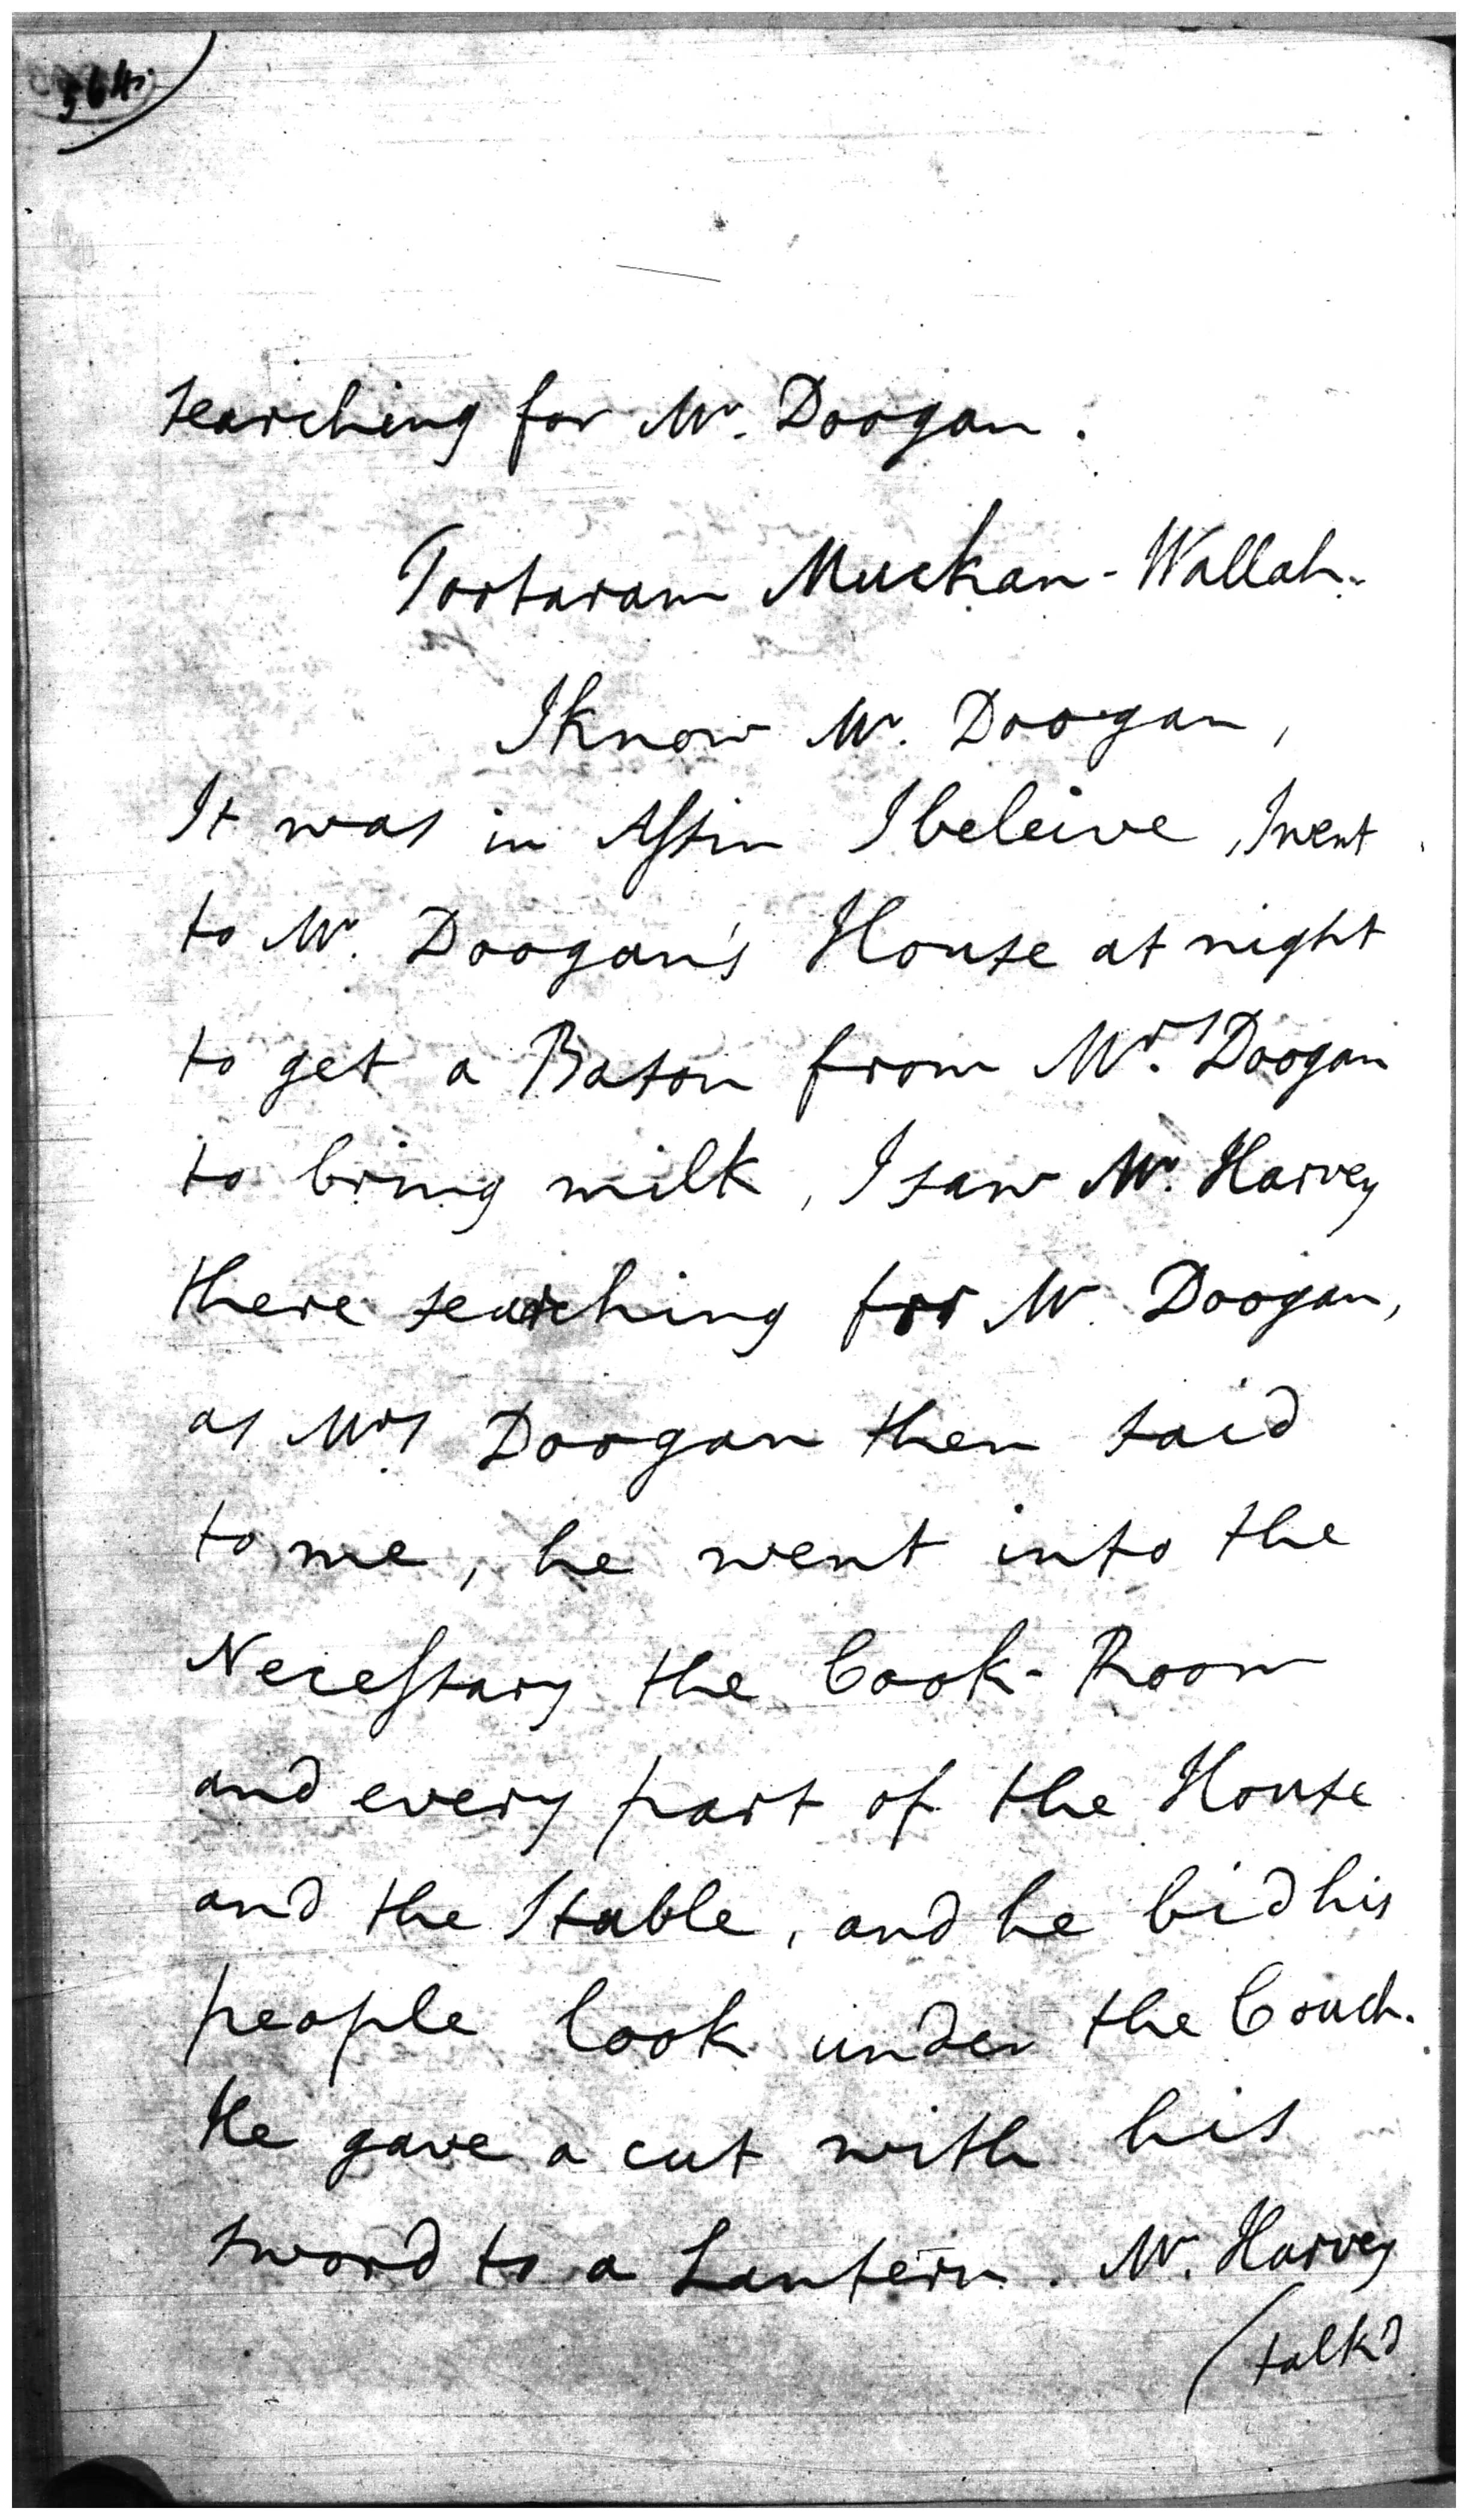 564
searching for Mr. Doogan.
Tootaram Muckan-Wallah.
I know Mr. Doogan,
It was in Assin I beleive, I went
to Mr. Doogan's House at night
to get a Bason from Mrs. Doogan
to bring milk, I saw Mr. Harvey
there searching for Mr. Doogan,
as Mrs Doogan then said
to me, he went into the
Necessary the Cook-Room
and every part of the House
and the Stable, and he bid his
people look under the Couch.
He gave a cut with his
sword to a Lantern. Mr. Harvey
(talk'd